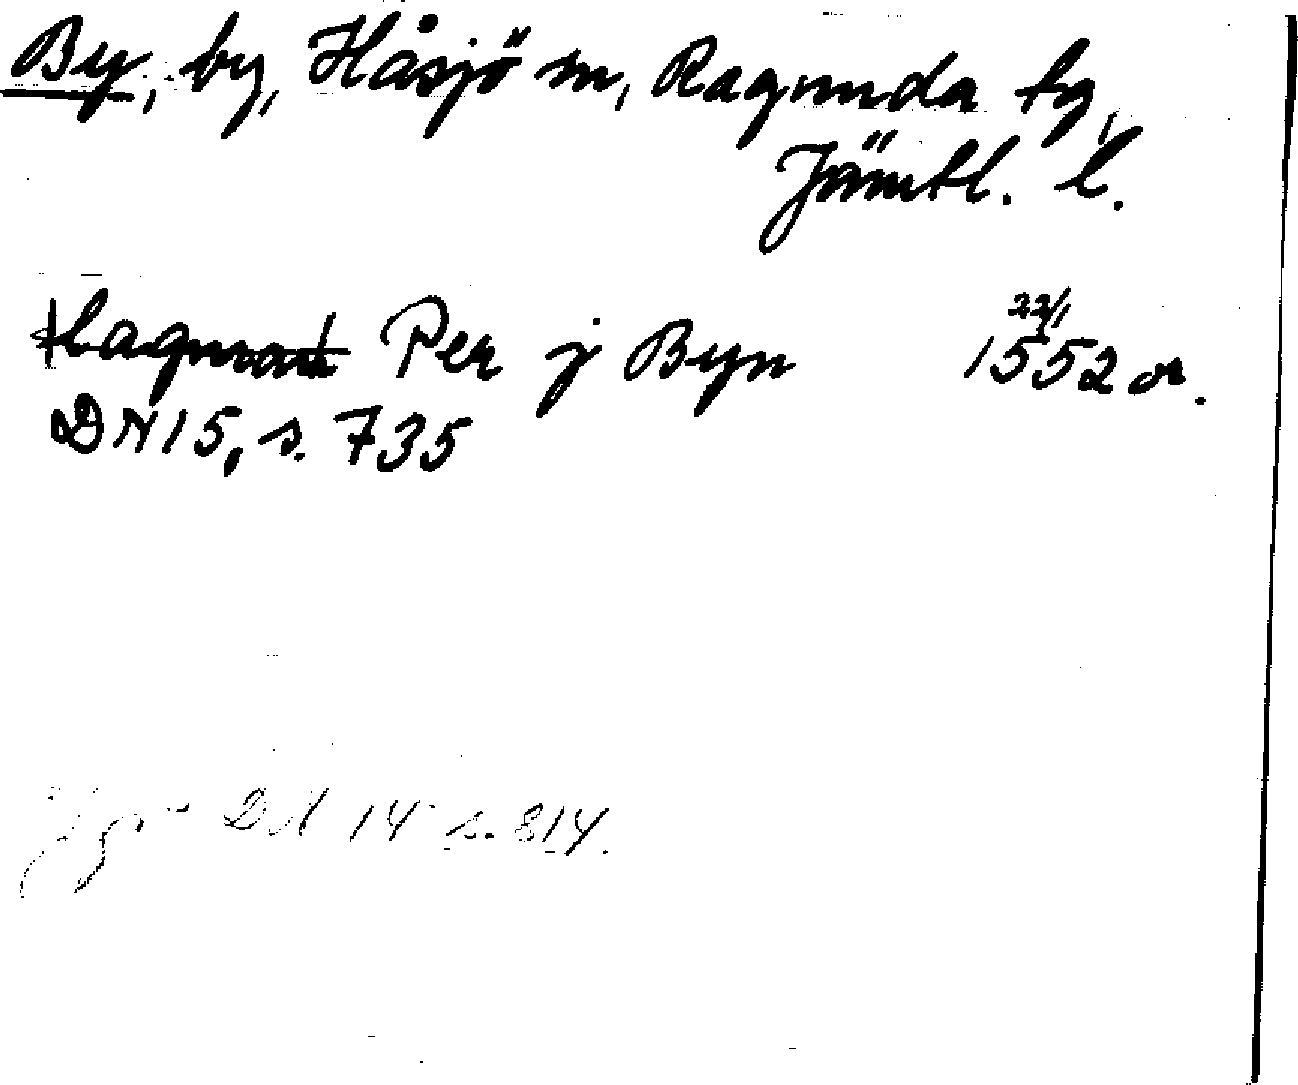 By, by, Håsjö sn, Ragunda tg,
Jämtl. l.
Per j Byn 22/1 1552 or.
DN 15, s. 735
Jfr DN 14 s. 814.